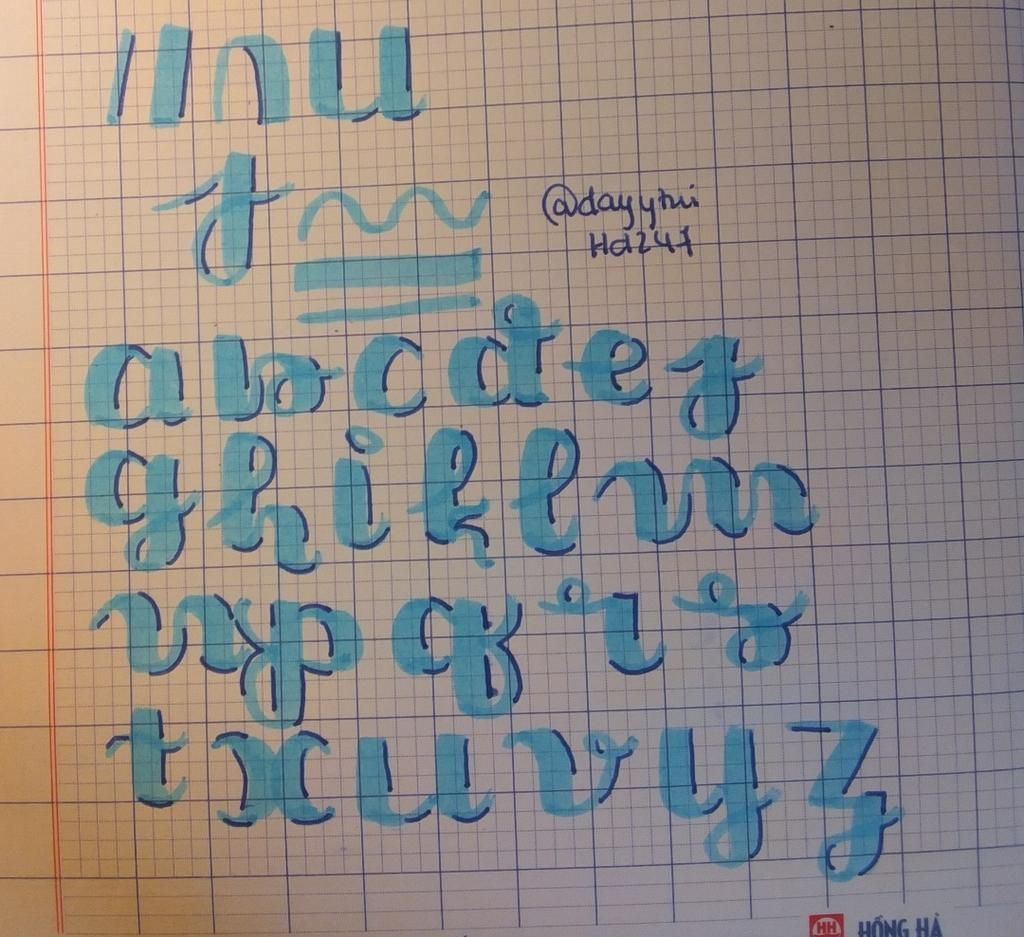 Hd247
a b c d e f
g h i k l m
n p q r s
t x u v y z
HH HỒNG HÀ